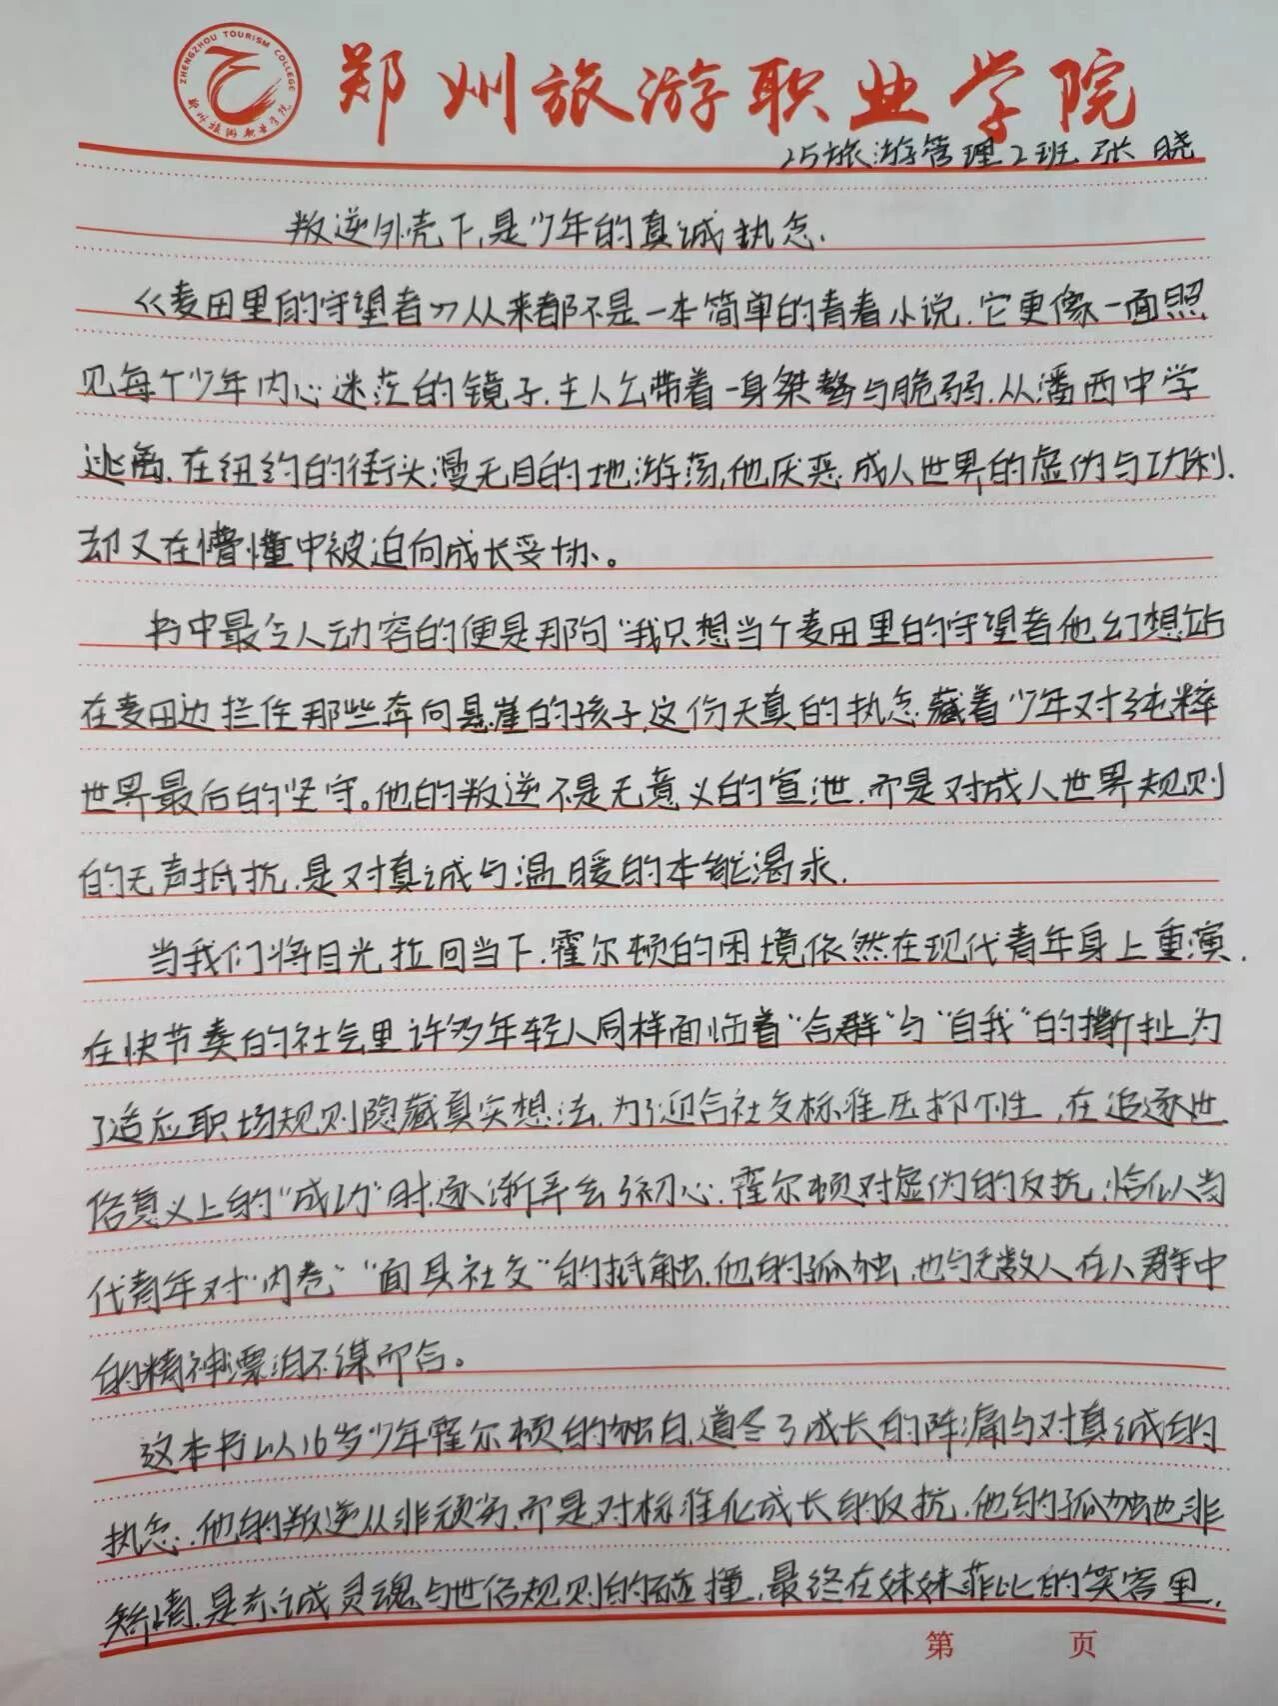 ZHENGZHOU TOURISM COLLEGE
郑州旅游职业学院
郑州旅游职业学院
25旅游管理2班 张晓
叛逆外壳下,是少年的真诚执念.
《麦田里的守望者》从来都不是一本简单的青春小说.它更像一面照
见每个少年内心迷茫的镜子.主人公带着一身桀骜与脆弱.从潘西中学
逃离.在纽约的街头漫无目的地游荡,他厌恶成人世界的虚伪与功利.
却又在懵懂中被迫向成长妥协。
书中最令人动容的便是那句"我只想当个麦田里的守望者他幻想站
在麦田边拦住那些奔向悬崖的孩子.这份天真的执念藏着少年对纯粹
世界最后的坚守。他的叛逆不是无意义的宣泄.而是对成人世界规则
的无声抵抗.是对真诚与温暖的本能渴求.
当我们将目光拉回当下.霍尔顿的困境依然在现代青年身上重演.
在快节奏的社会里许多年轻人同样面临着"合群"与"自我"的撕扯为
了适应职场规则隐藏真实想法.为了迎合社交标准压抑个性,在追逐世
俗意义上的"成功"时.逐渐弄丢了初心.霍尔顿对虚伪的反抗.恰似当
代青年对"内卷""面具社交"的抵触.他的孤独.也与无数人在人群中
的精神漂泊不谋而合。
这本书以16岁少年霍尔顿的独白,道尽了成长的阵痛与对真诚的
执念.他的叛逆从非顽劣.而是对标准化成长的反抗.他的孤独也非
矫情.是赤诚灵魂与世俗规则的碰撞.最终在妹妹菲比的笑容里.
第 页